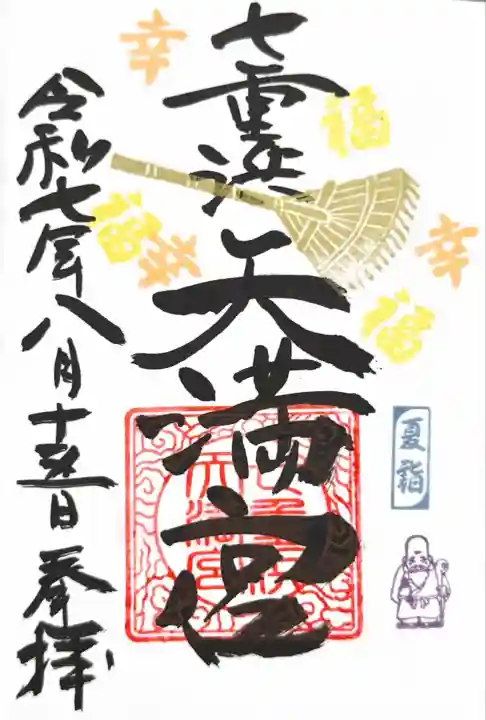 七重浜天満宮
令和七年八月十五日奉拝
幸
福
福
幸
幸
福
夏詣